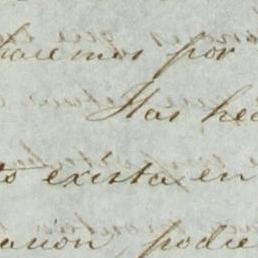 hacemos por
Has hec
to exista en
acion, podie